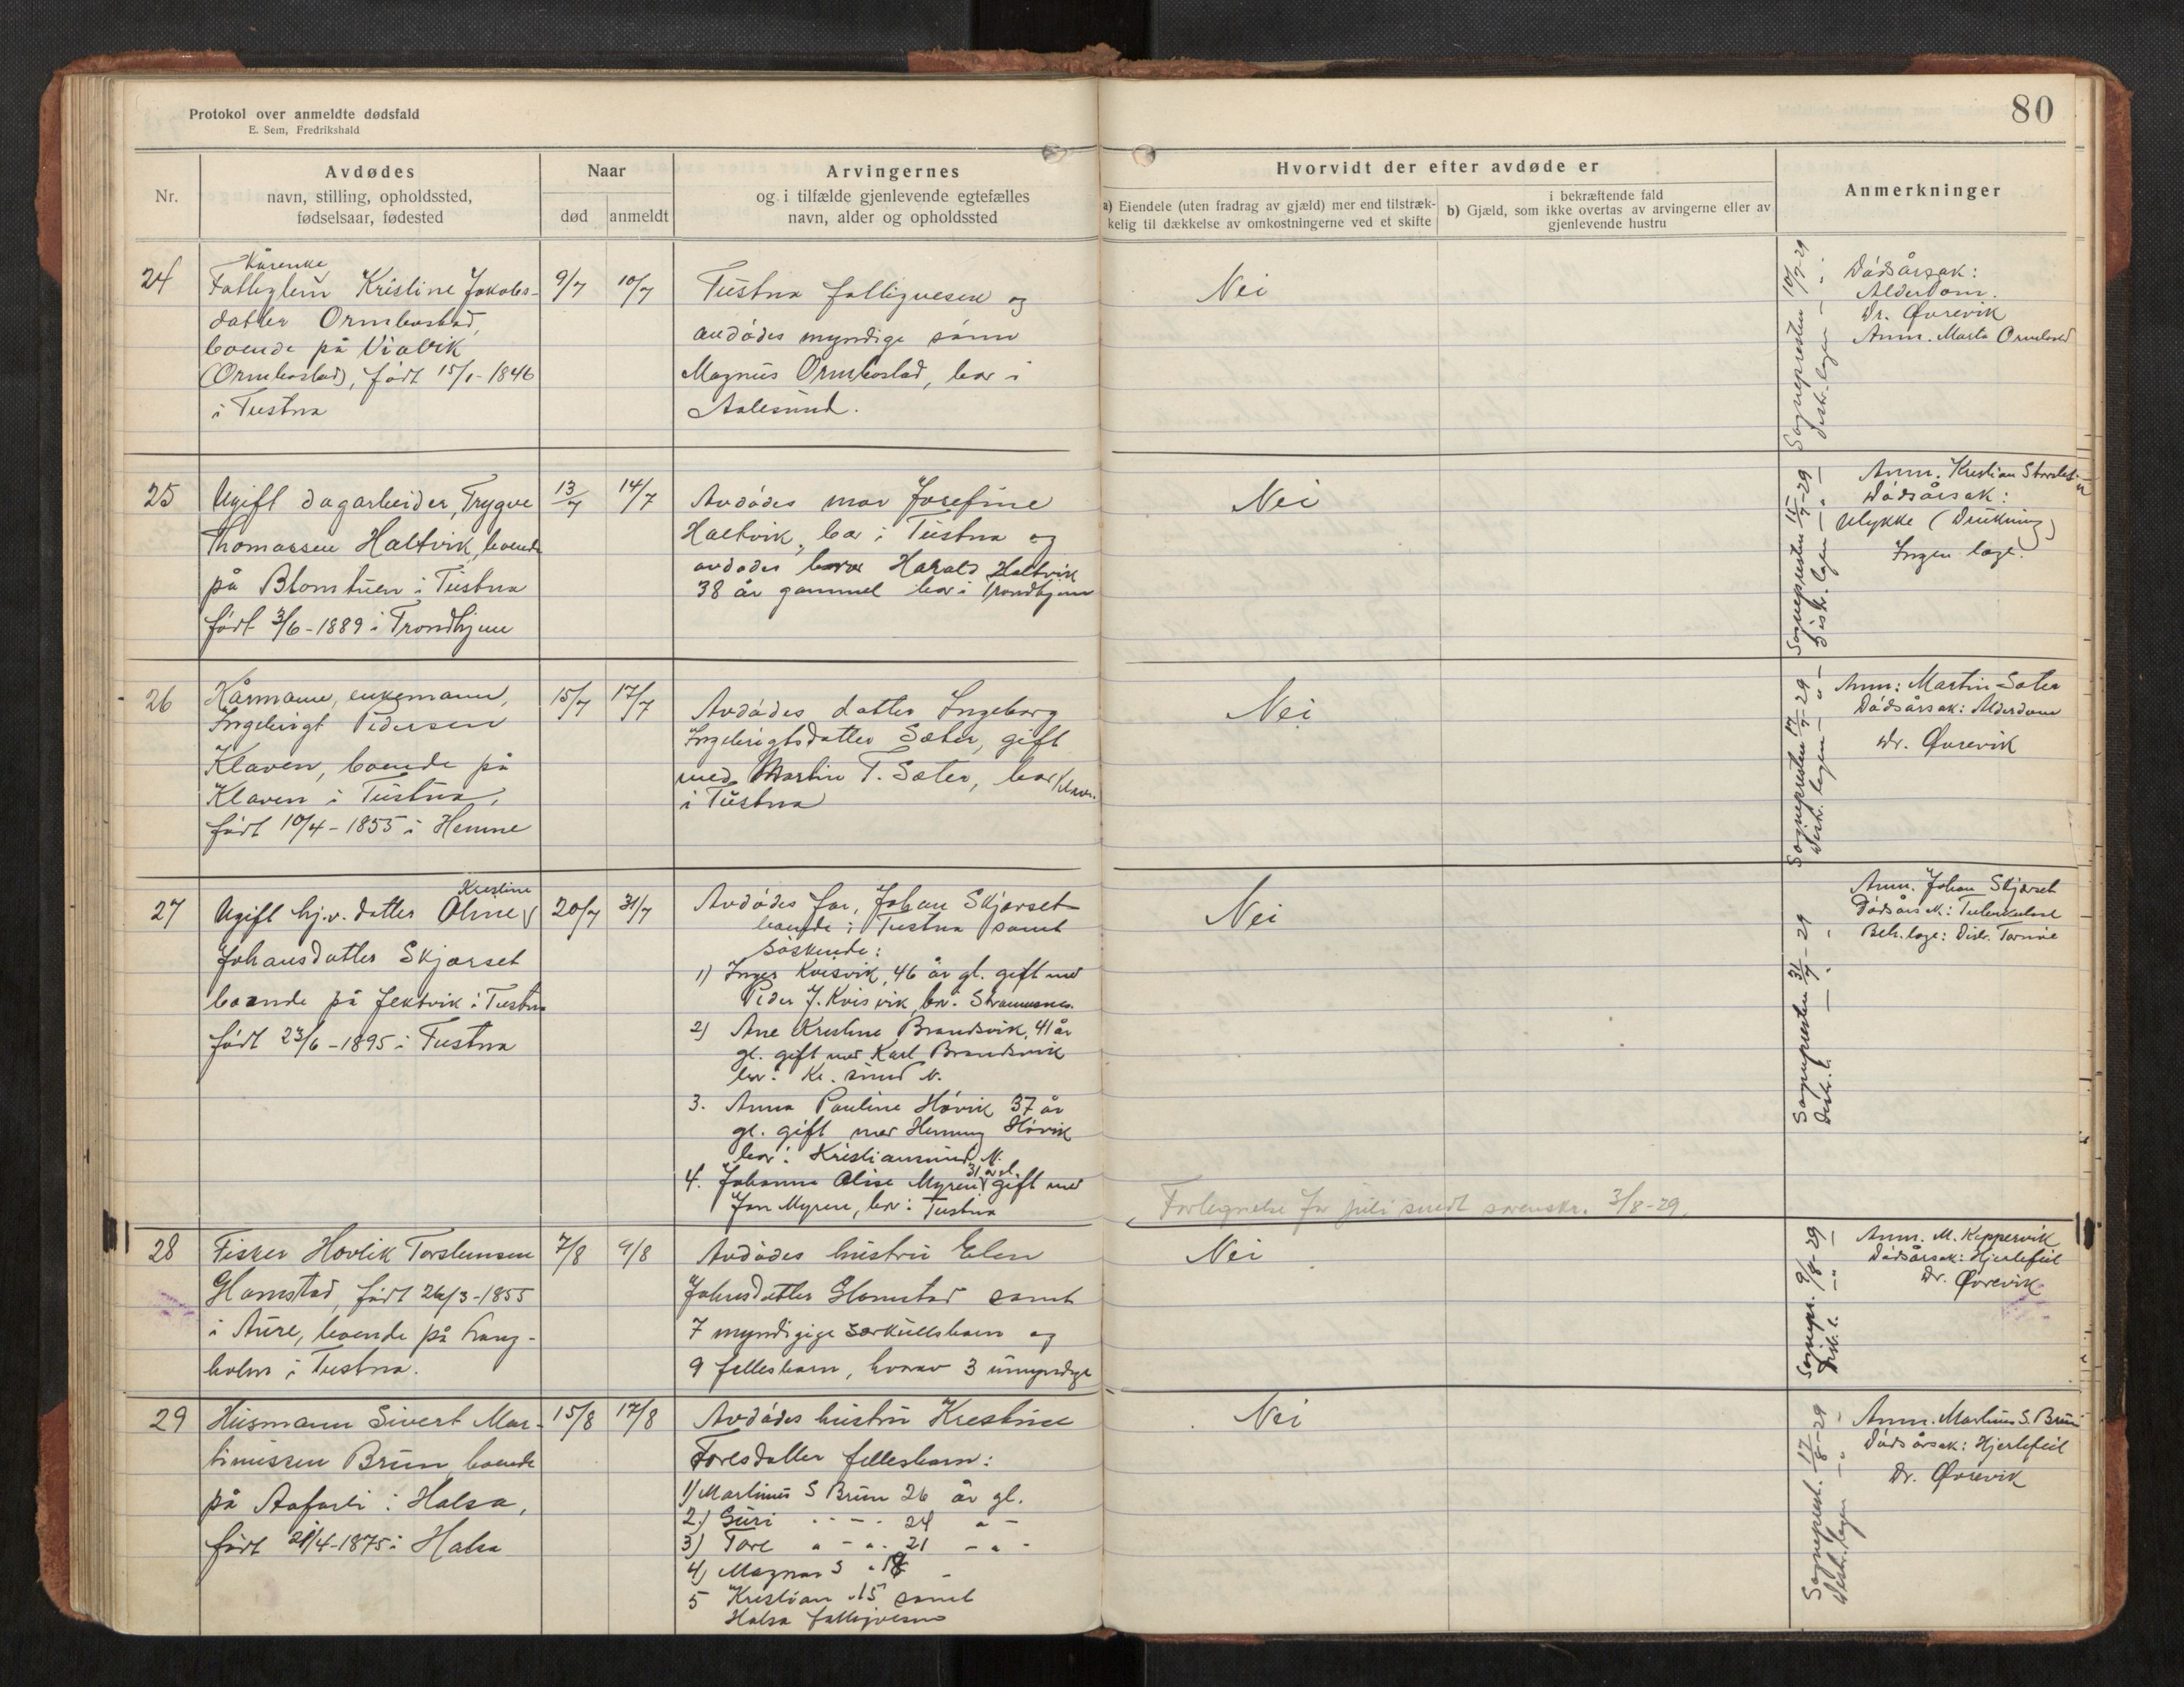 Protokol over anmeldte dødsfald
E. Sem, Fredrikshald
80
Nr.
Avdødes
navn, stilling, opholdssted,
fødselsaar, fødested
Naar
død
anmeldt
Arvingernes
og i tilfælde gjenlevende egtefælles
navn, alder og opholdssted
Hvorvidt der efter avdøde er
a) Eiendele (uten fradrag av gjæld) mer end tilstræk-
kelig til dækkelse av omkostningerne ved et skifte
i bekræftende fald
b) Gjæld, som ikke overtas av arvingerne eller av
gjenlevende hustru
Anmerkninger
24
Kårenke
Fattiglem Kristine Jakobs-
datter Ormbostad,
boende på
(Ormbostad), født 15/1-1846
i Tustna
9/7
10/7
Tustna fattigvesen og
avdødes myndige sønn
Magnus Ormbostad, bor i
Aalesund.
Nei
Sognepresten 10/7-29
Distr. legen - " -
Dødsårsak:
Alderdom.
Dr. Øvrevik
Anm. Marta Ormbostad
25
Ugift dagarbeider, Trygve
Thomassen Haltvik, boende
på Blomtuen i Tustna
født 3/6-1889 i Trondhjem
13/7
14/7
Avdødes mor Josefine
Haltvik, bor i Tustna og
avdødes bror Harald Haltvik
38 år gammel bor i Trondhjem
Nei
Sognepresten 15/7-29
Distr. legen - " -
Anm. Kristian
Dødsårsak:
Ulykke (Drukning)
Ingen læge.
26
Kårmann, enkemann,
Ingebrigt Pedersen
Klaven, boende på
Klaven i Tustna,
født 10/4-1855 i Hemne
15/7
17/7
Avdødes datter Ingeborg
Ingebrigtsdatter Sæter, gift
med Martin T. Sæter, bor Klaven
i Tustna
Nei
Sognepresten 17/7-29
Distr. legen - " -
Anm: Martin Sæter
Dødsårsak: Alderdom
Dr. Øvrevik
27
Kristine
Ugift hj.v. datter Oline
Johansdatter Skjærset
boende på Jektvik i Tustna
født 23/6-1895 i Tustna
20/7
31/7
Avdødes far, Johan Skjærset
boende i Tustna samt
søskende:
1) Inger Kvisvik, 46 år gl. gift med
Peder J. Kvisvik, bor i Straumsnes.
2) Ane Kristine Brandsvik, 41 år
gl. gift med Karl Brandsvik
bor i Kr. sund N.
3. Anna Pauline Høvik 37 år
gl. gift med Henning Høvik
bor i Kristiansund N.
31 år gl.
4. Johanna Olise Myren gift med
Jon Myren, bor i Tustna
Nei
Sognepresten 31/7-29
Distr. l. - " -
Anm. Johan Skjærset
Dødsårsak: Tuberkulose
Beh. læge: Distr.
Fortegnelse for juli sendt sorenskr. 3/8-29.
28
Fisker Hovlik Torstensen
Glamstad, født 26/3-1855
i Aure, boende på Lang-
holm i Tustna.
7/8
9/8
Avdødes hustru Elen
Johnsdatter Glamstad samt
7 myndigige særkullsbarn og
9 fellesbarn, hvorav 3 umyndige
Nei
Sognepr. 9/8-29
Distr. l. - " -
Anm. M. Keppervik
Dødsårsak: Hjertefeil
Dr. Øvrevik
29
Husmann Sivert Mar-
tinussen Brun, boende
på Aafarli i Halsa,
født 21/4-1875 i Halsa
15/8
17/8
Avdødes hustru Kristine
Toresdatter fellesbarn:
1) Martinus S Brun 26 år gl.
2) Guri " - " 24 " -
3) Tore " - " 21 - " -
4) Magnar S " 18 -
5 Kristian " 15 samt
Halsa fattigvesen
Nei
Sogneprest. 17/8-29
Distr. legen - " -
Anm. Martinus S. Brun
Dødsårsak: Hjertefeil
Dr. Øvrevik